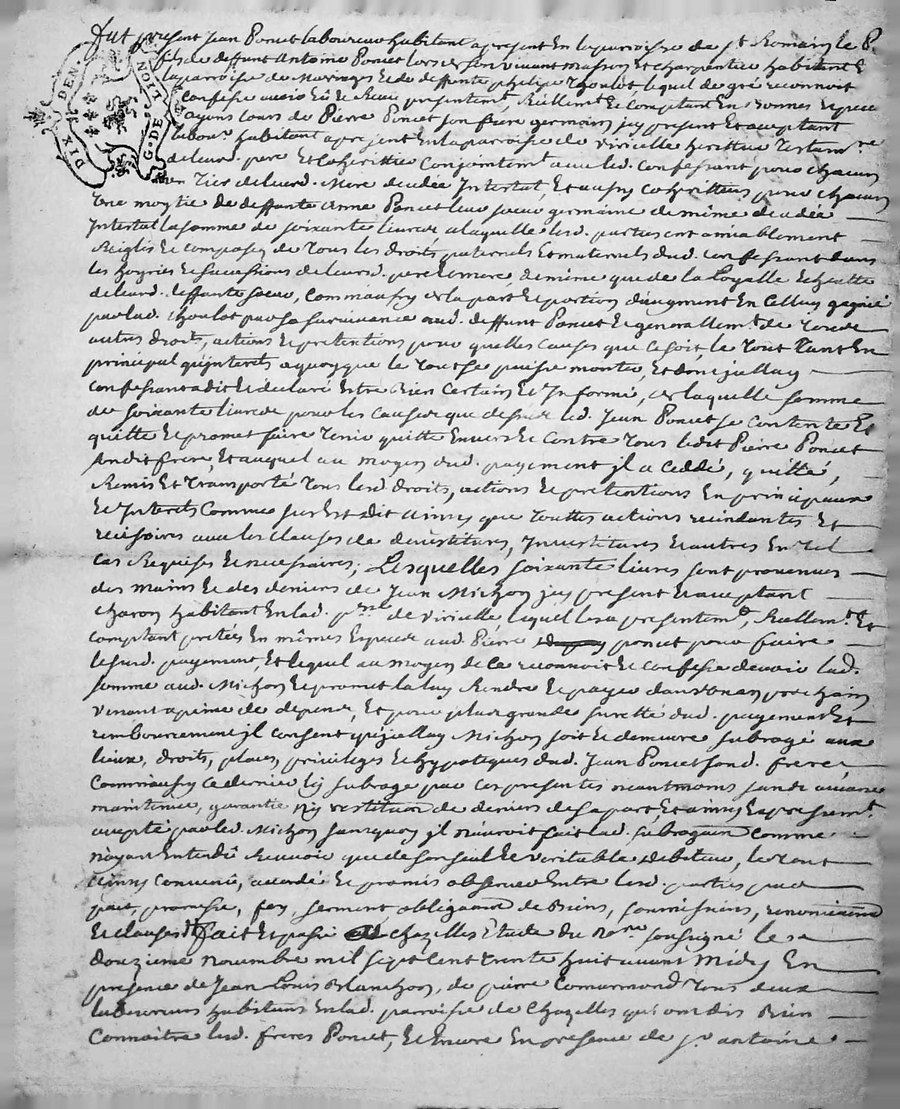 DIX DEN. G. DE LION
Fut present Jean Poncet laboureur habitant apresent En laparoisse de st. Romain le
fils de deffunt Antoine Poncet lors de son vivant masson Et charpentier habitant
laparoisse de Maringes Et de deffunte philipe Thoulot lequel de gré reconnoit
Confesse avoir Eü Et Receu presentemt. Réellemt. Et comptant En bonnes Especes
ayans cours de Pierre Poncet son frere germain jcy present Et acceptant
labour. habitant apresent En laparoisse de viricelle heritier Testamre
deleurd. pere Et Coherittier Conjointemt. avec led. Confessant pour chacun
un Tier deleurd. Mere decedée Intestat, Et aussy coheritiers pour chacun
Une moytié de deffunte Anne Poncet leur soeur germaine de même decedée
Intestat la somme de soixante livres a laquelle lesd. parties ont amiablement
Reiglés Et composés de Tous les droits paternels Et maternels dud. Confessant dans
les hoyries Et sucessions deleurd. pere Et mere, de même que de la Loyalle Echutte
deleurd. deffunte soeur, Comme aussy de la part Et portion d'augment En Celluy gagnée
par lad. Thoulot par sa survivance aud. deffunt Poncet Et generallemt. de Tous
autres droits, actions Et pretentions pour quelles Causes que ce soit, le Tout Tant En
principal qu'jnterets a quoy que le Tout se puisse monter Et dont jcelluy
Confessant a dit Et declaré Estre Bien Certain Et Informé, de laquelle somme
de soixante livres pour les Causes que dessus led. Jean Poncet se contente Et
quitte Et promet faire Tenir quitte Envers Et Contre Tous ledit Pierre Poncet
Sondit frere, Et auquel au moyen dud. payement jl a Ceddé, quitté,
Remis Et Transporté Tous lesd. droits, actions Et pretentions En principaux
Et Interets Comme sus Est dit ainsy que Touttes actions rescindantes Et
rescisoires avec les Clauses de devestitures, Investitures Et autres En Tel
cas Requises Et necessaires; Lesquelles soixante livres sont provenues
des mains Et des deniers de Jean Michon jcy present Et acceptant
charon habitant En lad. psse de viricelle lequel les a presentemt., Réellemt. Et
comptant pretées En mêmes Especes aud. Pierre poncet pour faire
le susd. payement, Et lequel au moyen de ce reconnoit Et confesse devoir lad.
somme aud. Michon Et promet la luy Rendre Et payer dans Un an prochain
venant a peine de depens, Et pour plus grande suretté dud. payement Et
remboursement jl consent qu'jcelluy Michon soit Et demeure subrogé aux
lieux, droits, places, privileges Et hypoteques dud. Jean Poncet sond. frere,
Comme aussy ce dernier l'y subroge par ces presentes neantmoins sans aucune
maintenue, garantie n'y restitution de deniers de sa part, Et ainsy Expressemt.
accepté par led. Michon sans quoy jl n'auroit fait lad. subrogaon Comme
n'ayant Entendû Recevoir que de son seul Et veritable debiteur, le Tout
ainsy Convenû, accordé Et promis observer Entre lesd. parties par
pact, promesse, foy, serment obligaon de Biens, soumissions, renonciaons
Et clauses. Fait Et passé a chazelles Etude du Nore soussigné le
douzieme novembre mil sept cent trente huit avant Midy En
presence de Jean Louis Blanchon, de pierre Comarmond Tous deux
laboureurs habitans En lad. paroisse de Chazelles qui ont dit Bien
Connaitre lesd. freres Poncet, Et Encore En presence de sr. antoine